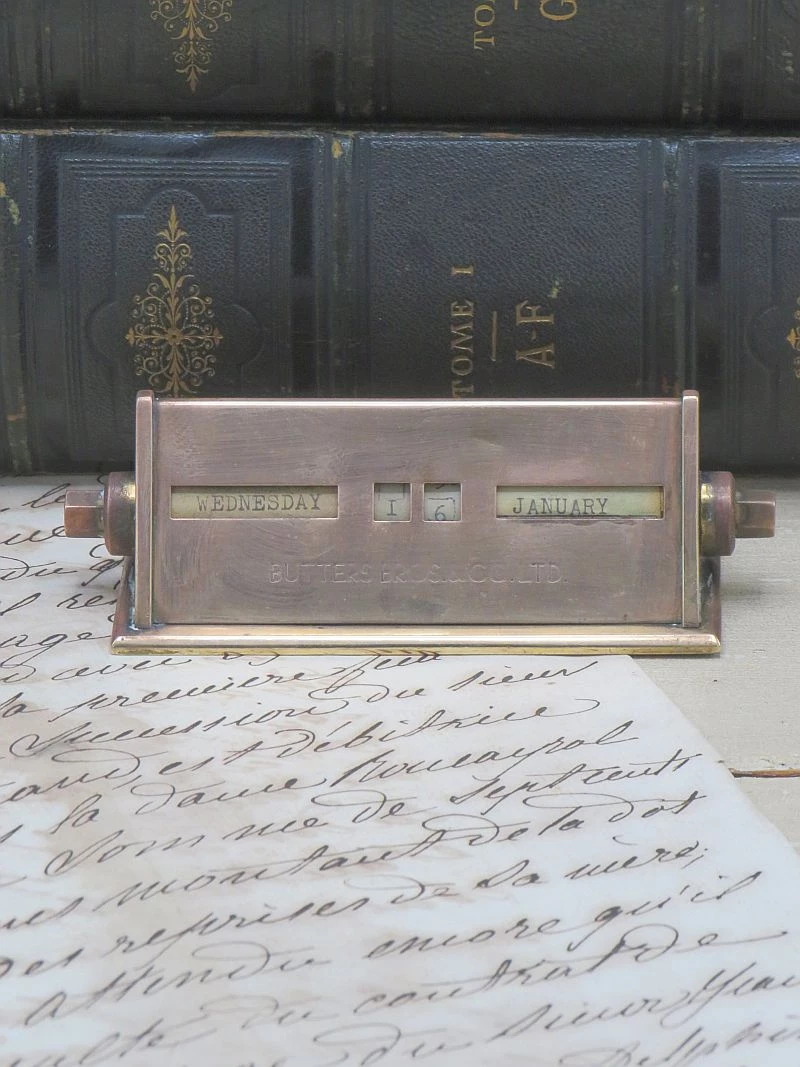 TOM
G
TOME I
A-F
WEDNESDAY 1 6 JANUARY
BUTTERS BROS. & CO. LTD.
la première
succession du sieur
est débitrice
la dame Roucayrol
Somme de Sept cents
montant de la dot
des reprises de Sa mère,
attendu encore qu'il
du contrat de
du Sieur Jean
Delphi